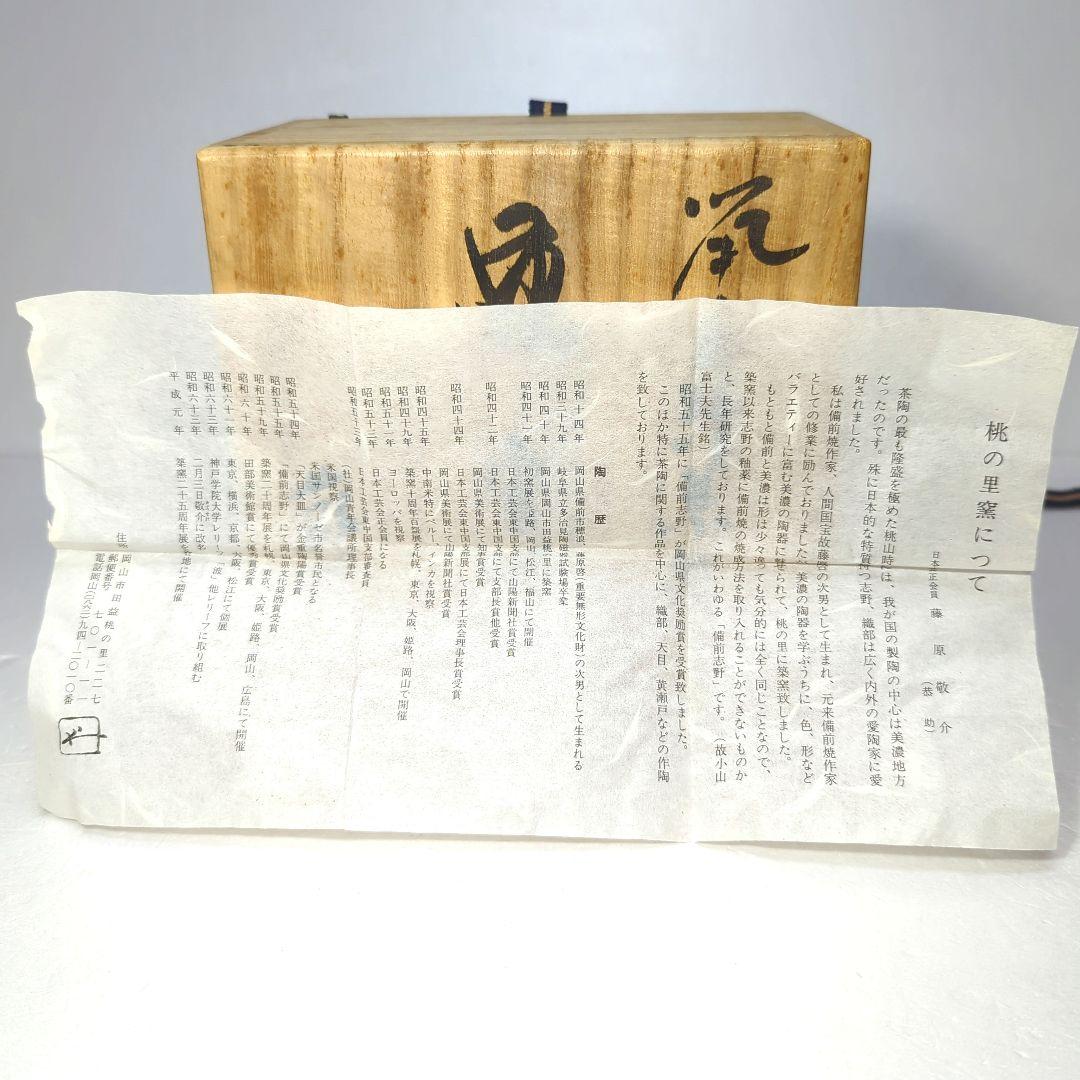 桃の里窯につて
日本工芸会正会員 藤原敬介
（恭助）
茶陶の最も隆盛を極めた桃山時は、我が国の製陶の中心は美濃地方
だったのです。殊に日本的な特質 つ志野、織部は広く内外の愛陶家に愛
好されました。
私は備前焼作家、人間国宝故藤原啓の次男として生まれ、元来備前焼作家
としての修業に励んでおりましたが美濃の陶器を学ぶうちに、色、形など
バラエティーに富む美濃の陶器に魅せられて、桃の里に築窯致しました。
もともと備前と美濃は形は少々違っても気分的には全く同じことなので、
築窯以来志野の釉薬に備前焼の焼成方法を取り入れることができないものか
と、長年研究をしております。これがいわゆる「備前志野」です。（故小山
富士夫先生銘）
昭和五十五年に「備前志野」が岡山県文化奨励賞を受賞致しました。
このほか特に茶陶に関する作品を中心に、織部、天目、黄瀬戸などの作陶
を致しております。
陶歴
昭和十四年 岡山県備前市穂浪、藤原啓（重要無形文化財）の次男として生まれる
昭和三十九年 岐阜県立多治見陶磁器試験場卒業
昭和四十年 岡山県岡山市田益桃の里に築窯
昭和四十一年 初窯展を姫路、岡山、松江、福山にて開催
日本工芸会東中国支部にて山陽新聞社賞受賞
昭和四十二年 日本工芸会東中国支部にて支部長賞他受賞
岡山県美術展にて知事賞受賞
昭和四十四年 日本工芸会東中国支部展にて日本工芸会理事長賞受賞
岡山県美術展にて山陽新聞社賞受賞
昭和四十五年 中南米特にペルー、インカを視察
昭和四十九年 築窯十周年百碗展を札幌、東京、大阪、姫路、岡山で開催
昭和五十一年 ヨーロッパを視察
昭和五十二年 日本工芸会正会員になる
日本工芸会東中国支部審査員
昭和五十三年 （社）岡山青年会議所理事長
米国視察
昭和五十四年 米国サンノーゼ市名誉市民となる
「天目大皿」が金重陶陽賞受賞
昭和五十五年 「備前志野」にて岡山県文化奨励賞受賞
昭和五十九年 築窯二十周年展を札幌、東京、大阪、姫路、岡山、広島にて開催
昭和六十年 田部美術館賞にて優秀賞受賞
昭和六十一年 東京、横浜、京都、大阪、松江にて個展
昭和六十三年 神戸学院大学レリーフ「波」他レリーフに取り組む
昭和六十三年 二月三日敬介に改名
平成元年 築窯二十五周年展を各地にて開催
住所 岡山市田益桃の里二二一七
郵便番号 七〇一―一一
電話岡山（〇八六二）九四―二〇一〇番